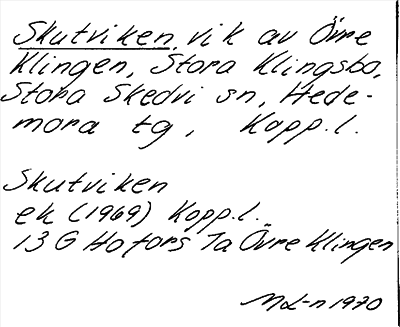 Skutviken, vik av Övre
Klingen, Stora Klingsbo,
Stora Skedvi sn, Hede-
mora tg, Kopp.l.
Skutviken
ek (1969) Kopp.l.
13 G Hofors 7a Övre Klingen
ML-n 1970